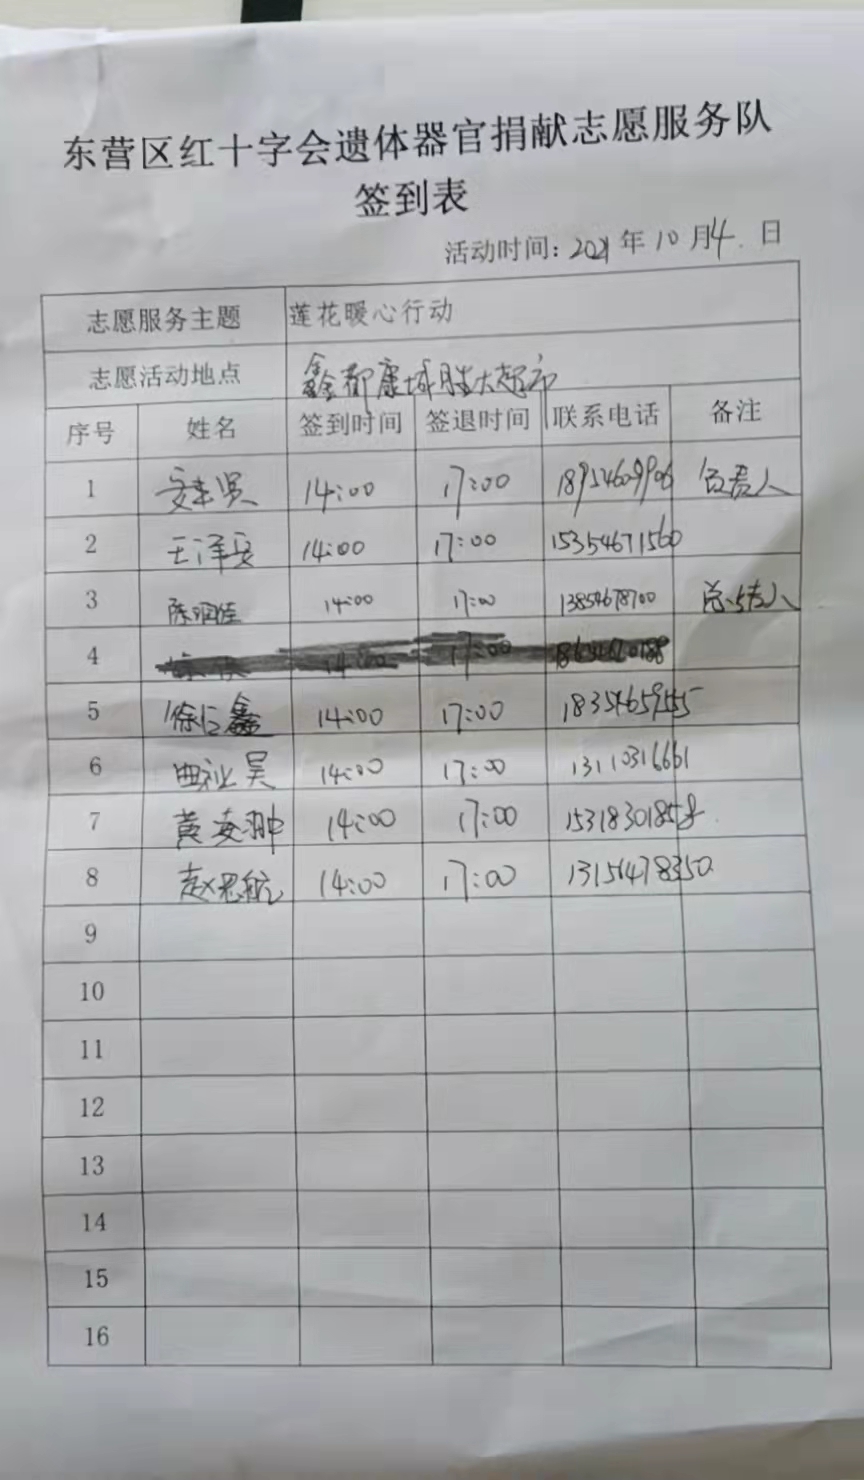 东营区红十字会遗体器官捐献志愿服务队
签到表
活动时间：2021年10月4.日
志愿服务主题 莲花暖心行动
志愿活动地点 鑫都康城胜大超市
序号 姓名 签到时间 签退时间 联系电话 备注
1 14:00 17:00 18954609906 负责人
2 王泽安 14:00 17:00 15354671560
3 陈润佳 14:00 17:00 13854678700 总结人
4 14:00 17:00
5 徐仁鑫 14:00 17:00 18354659455
6 14:00 17:00 13110316661
7 黄海翀 14:00 17:00 15318301858
8 赵思航 14:00 17:00 13156478350
9
10
11
12
13
14
15
16